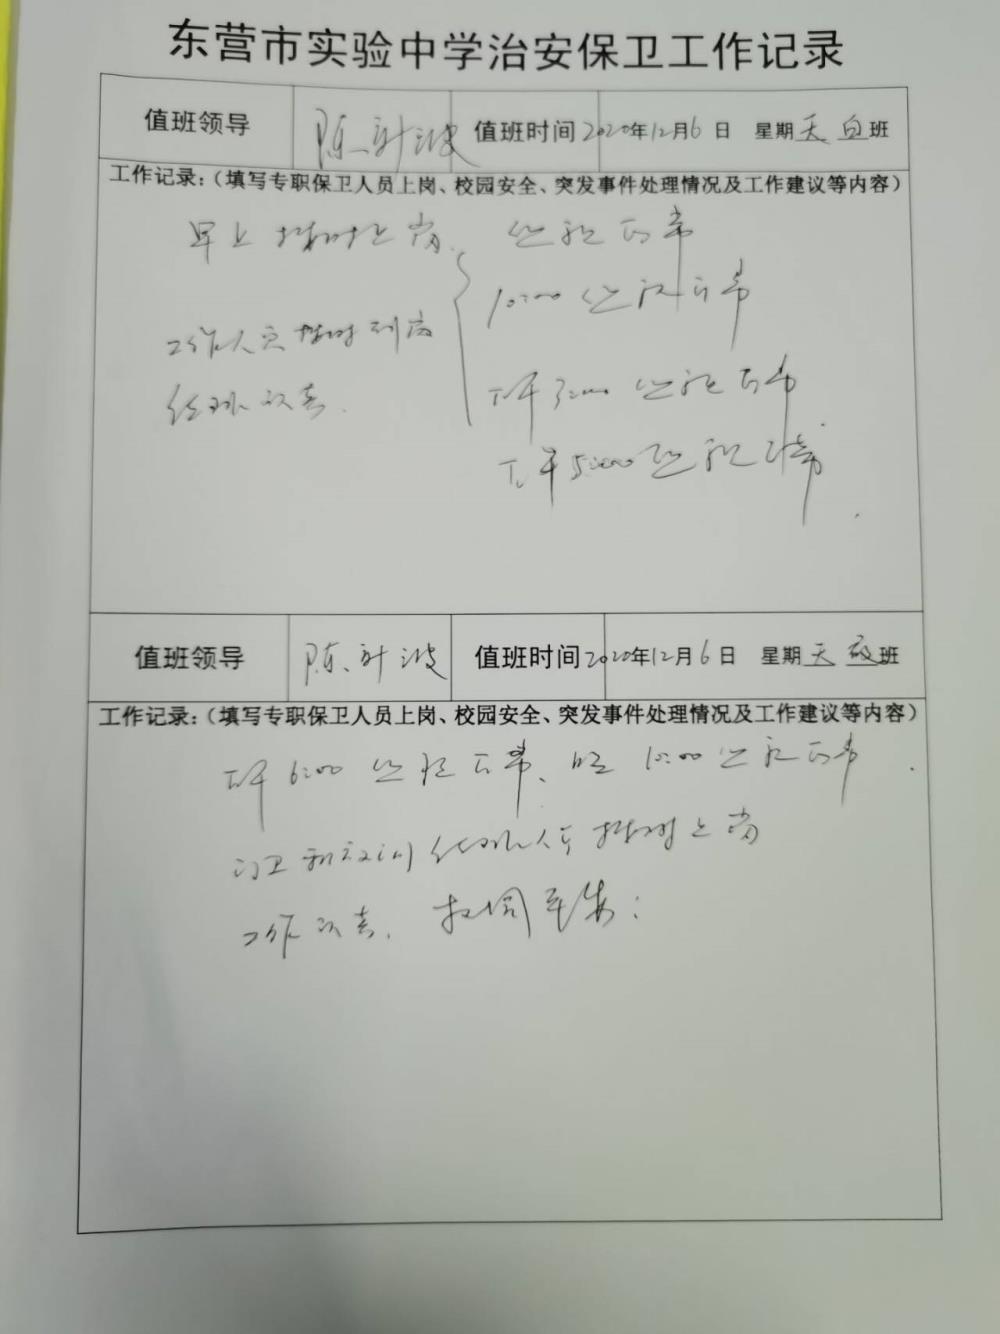 东营市实验中学治安保卫工作记录
值班领导 陈 波 值班时间 2020年12月6日 星期天 白班
工作记录:(填写专职保卫人员上岗、校园安全、突发事件处理情况及工作建议等内容)
早上按时上岗、巡视正常
10:00 巡视正常
工作人员按时到岗
下午3:00 巡视正常
认真.
下午5:00 巡视正常.
值班领导 陈 波 值班时间 2020年12月6日 星期天 夜班
工作记录:(填写专职保卫人员上岗、校园安全、突发事件处理情况及工作建议等内容)
下午6:00 巡视正常、晚10:00 巡视正常.
门卫和 人员按时上岗
工作认真.校园平安: